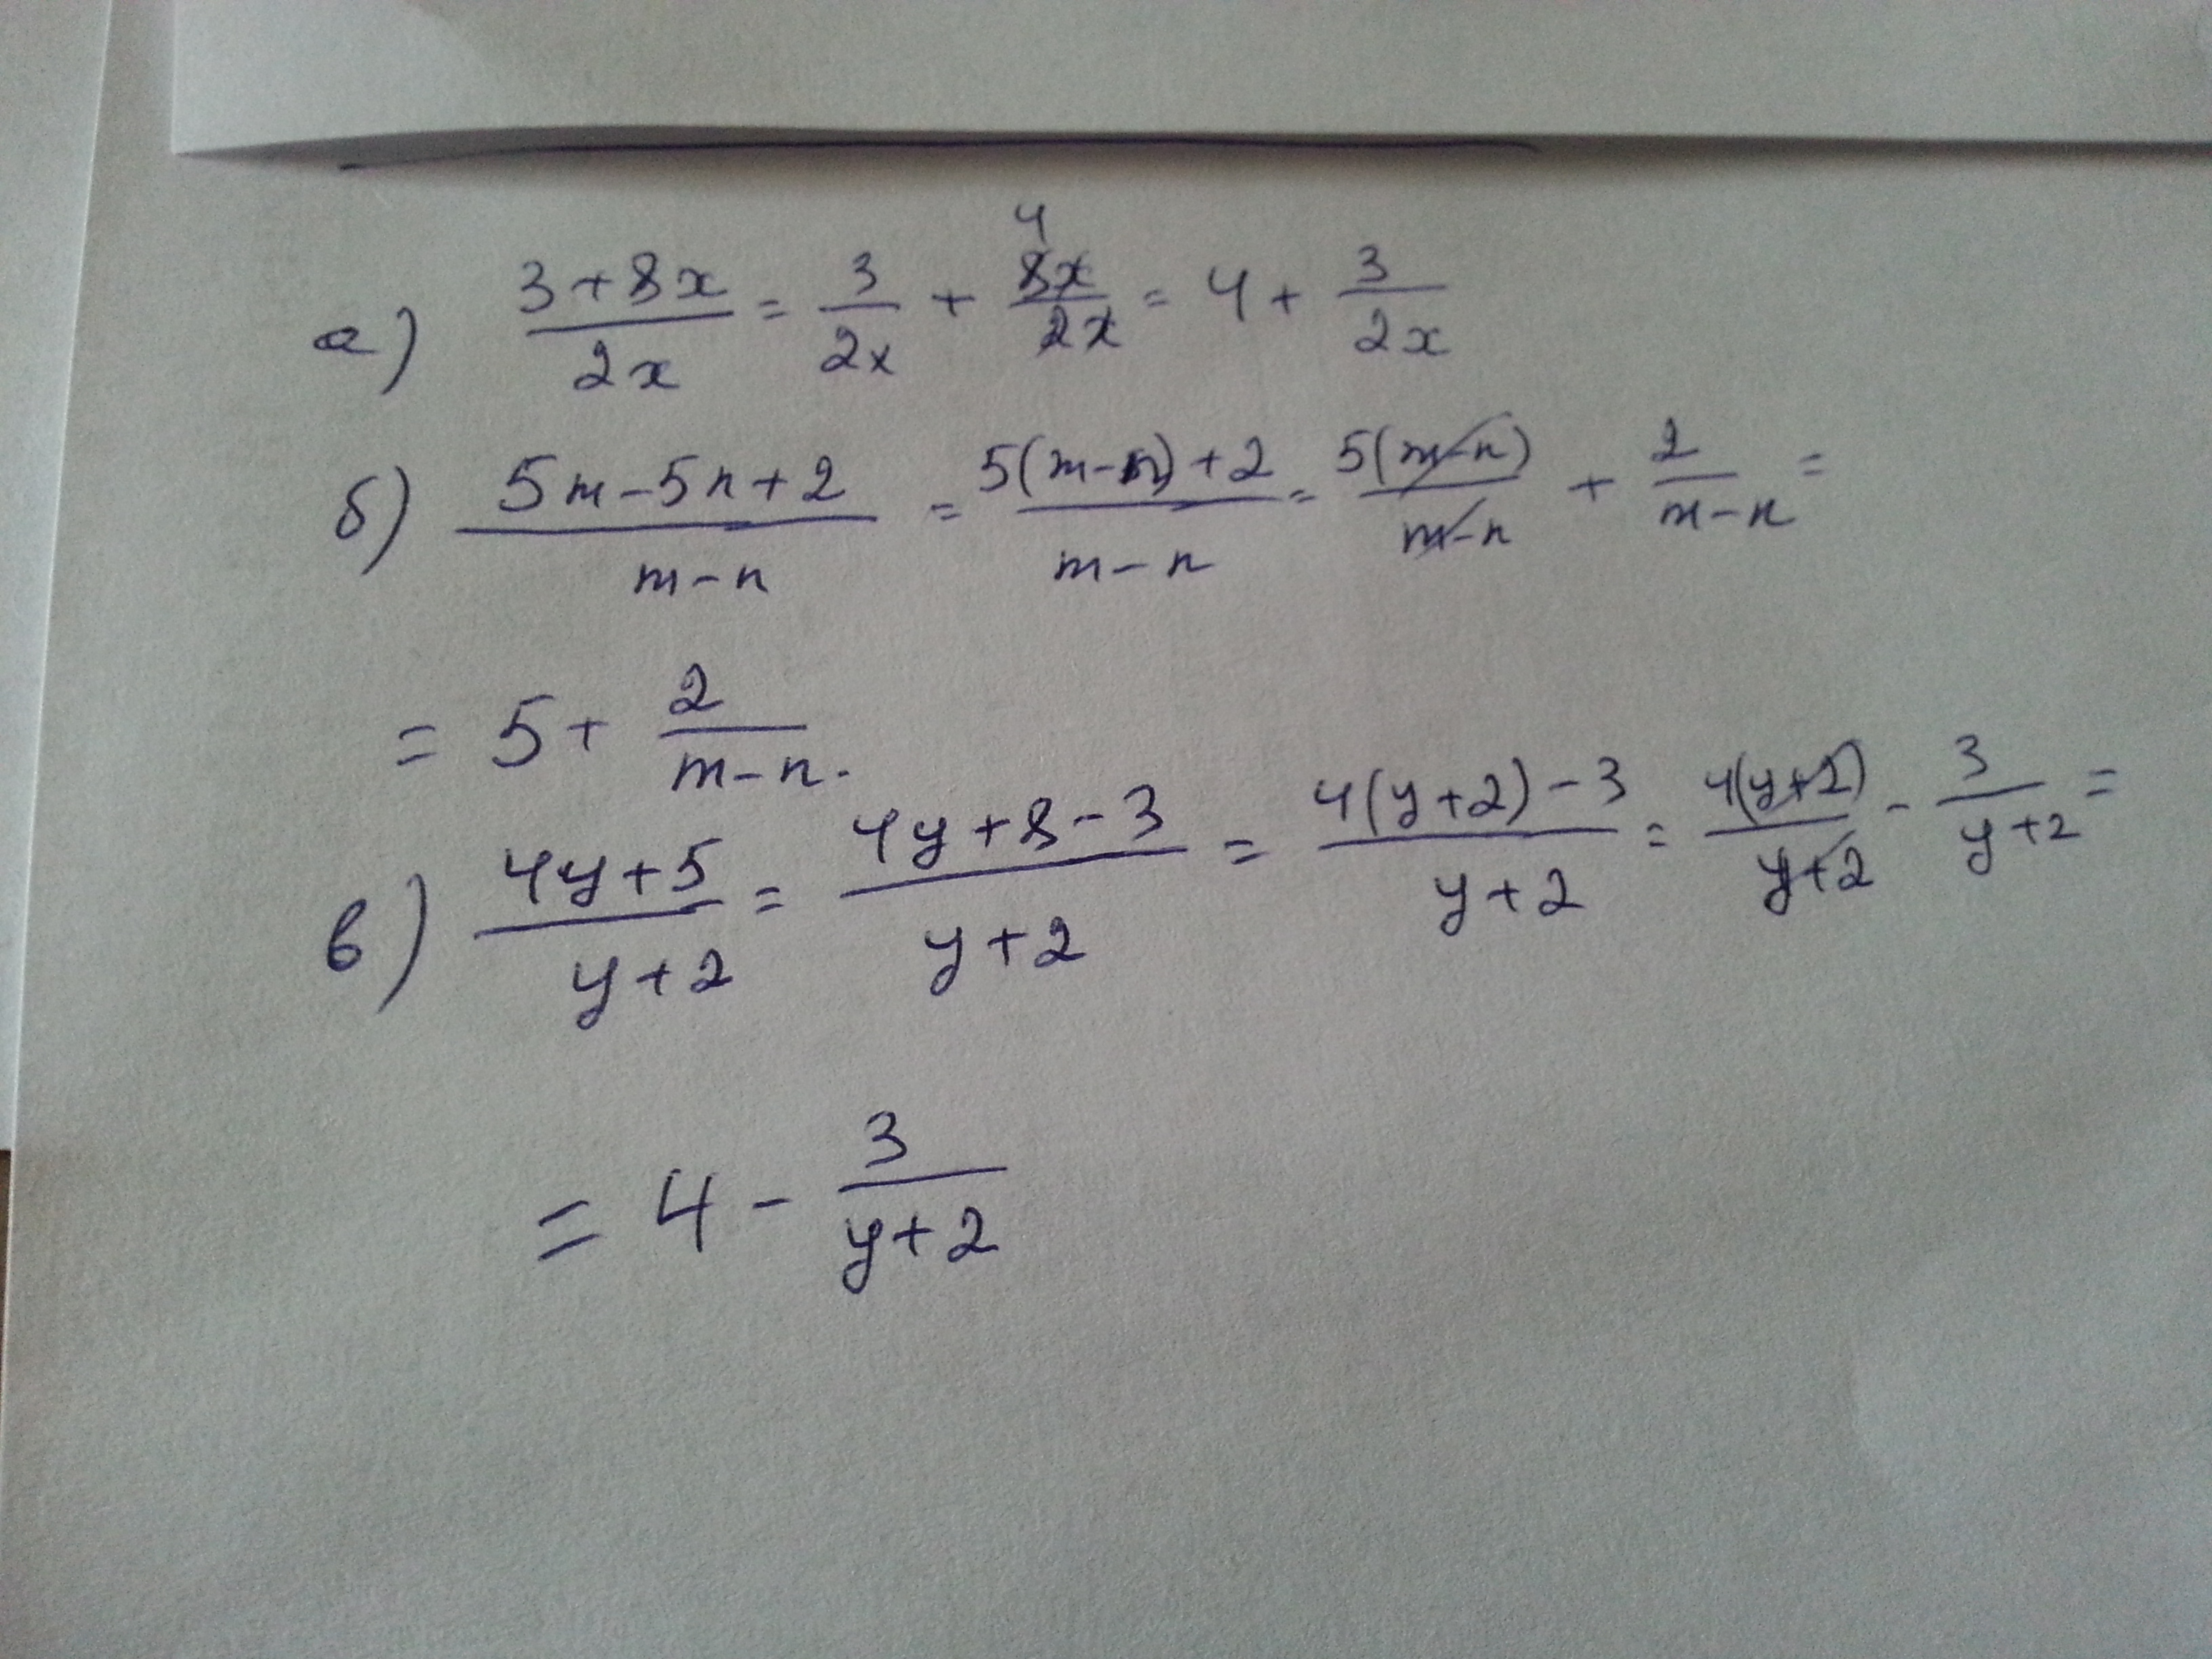 а) (3+8x)/(2x) = 3/(2x) + 8x/(2x) 4 = 4 + 3/(2x)
б) (5m-5n+2)/(m-n) = (5(m-n)+2)/(m-n) = 5(m-n)/(m-n) + 2/(m-n) =
= 5 + 2/(m-n).
в) (4y+5)/(y+2) = (4y+8-3)/(y+2) = (4(y+2)-3)/(y+2) = 4(y+2)/(y+2) - 3/(y+2) =
= 4 - 3/(y+2)